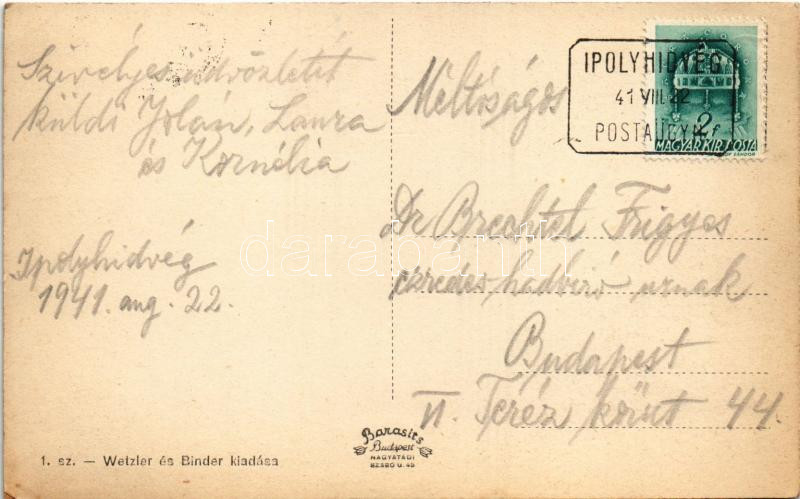 Szivélyes üdvözletét
küldi Jolán, Laura
és Kornélia
Ipolyhidvég
1941. aug. 22.
1. sz. — Wetzler és Binder kiadása
Barasits
Budapest
NAGYATÁDI
SZABÓ U. 45
IPOLYHIDVÉG
41 VIII. 22
POSTAÜGYN.
2f
MAGYAR KIR. POSTA
Méltóságos
Dr Brechtel Frigyes
ezredes hadbiró urnak
Budapest
VI. Teréz körut 44.
darabanth